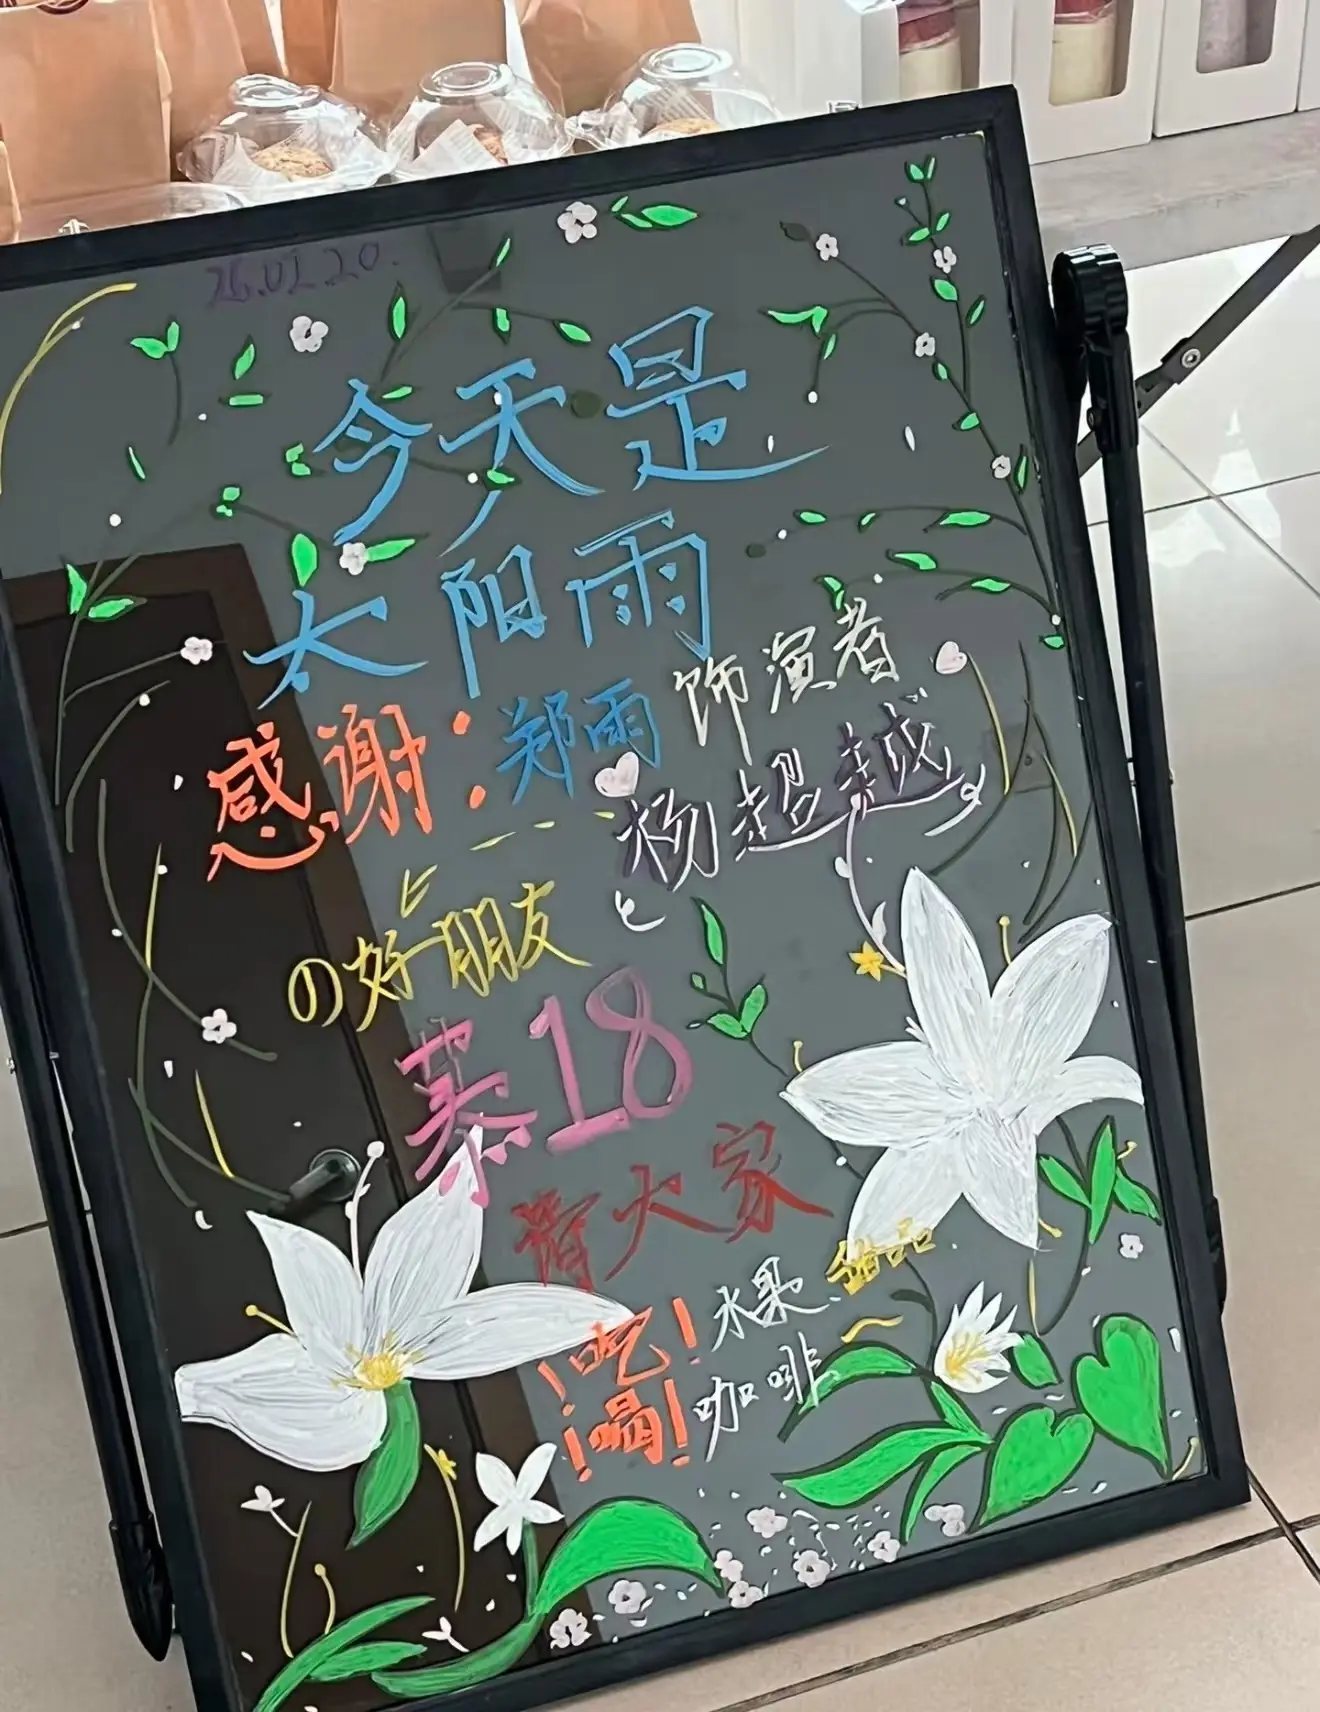 26.01.20.
今天是
太阳雨
感谢:郑雨 饰演者
杨超越
の好朋友
慕18
请大家
!吃! 水果、甜品
!喝! 咖啡